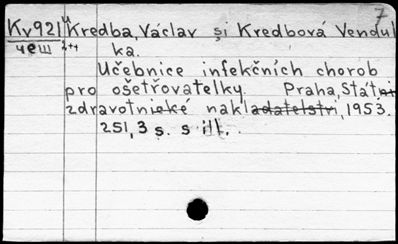 7
Kv921 4 Kredba, Václav și Kredbová Vendul
чеш 2+4 ka.
Učebnice infekčních chorob
pro ošetřovatelky. Praha, Stát.
zdravotnické nakladatelství, 1953.
251, 3 s. s ill.